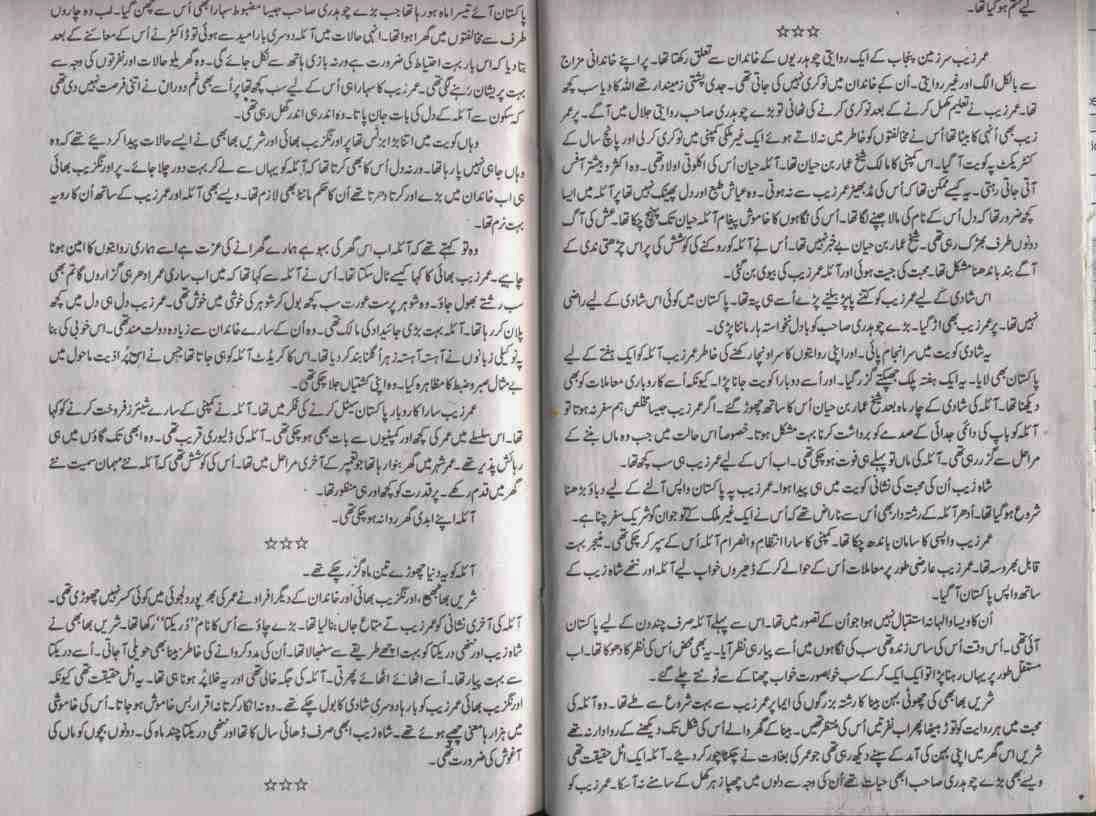 لیے ختم ہو گیا تھا۔
☆☆☆
عمر زیب سرزمین پنجاب کے ایک روایتی چوہدریوں کے خاندان سے تعلق رکھتا تھا۔ پر اپنے خاندانی مزاج
سے بالکل الگ اور غیر روایتی۔ اُن کے خاندان میں نوکری نہیں کی جاتی تھی۔ جدی پشتی زمیندار تھے اللہ کا دیا سب کچھ
تھا۔ عمر زیب نے تعلیم مکمل کرنے کے بعد نوکری کرنے کی ٹھانی تو بڑے چوہدری صاحب روایتی جلال میں آ گئے۔ پر عمر
زیب بھی اُنہی کا بیٹا تھا اُس نے مخالفتوں کو خاطر میں نہ لاتے ہوئے ایک غیر ملکی کمپنی میں نوکری کر لی اور پانچ سال کے
کنٹریکٹ پہ کویت آ گیا۔ اس کمپنی کا مالک شیخ عمار بن حیان تھا۔ آئلہ حیان اُس کی اکلوتی اولاد تھی۔ وہ اکثر و بیشتر آفس
آتی جاتی رہتی۔ یہ کیسے ممکن تھا کہ اُس کی مڈبھیڑ عمر زیب سے نہ ہوتی۔ وہ عیاش طبع اور دل پھینک نہیں تھا پر آئلہ میں ایسا
کچھ ضرور تھا کہ دل اُس کے نام کی مالا جپنے لگا تھا۔ اُس کی نگاہوں کا خاموش پیغام آئلہ حیان تک پہنچ چکا تھا۔ عشق کی آگ
دونوں طرف بھڑک رہی تھی۔ شیخ عمار بن حیان بے خبر نہیں تھا۔ اُس نے آئلہ کو روکنے کی کوشش کی پر اس چڑھتی ندی کے
آگے بند باندھنا مشکل تھا۔ محبت کی جیت ہوئی اور آئلہ عمر زیب کی بیوی بن گئی۔
اس شادی کے لیے عمر زیب کو کتنے پاپڑ بیلنے پڑے اُسے ہی پتہ تھا۔ پاکستان میں کوئی اس شادی کے لیے راضی
نہیں تھا۔ پر عمر زیب بھی اڑ گیا۔ بڑے چوہدری صاحب کو بادل نخواستہ ہار ماننا پڑی۔
یہ شادی کویت میں سرانجام پائی۔ اور اپنی روایتوں کا سر اونچا رکھنے کی خاطر عمر زیب آئلہ کو ایک ہفتے کے لیے
پاکستان بھی لایا۔ یہ ایک ہفتہ پلک جھپکتے گزر گیا۔ اور اُسے دوبارا کویت جانا پڑا۔ کیونکہ اُسے کاروباری معاملات کو بھی
دیکھنا تھا۔ آئلہ کی شادی کے چار ماہ بعد شیخ عمار بن حیان اُس کا ساتھ چھوڑ گئے۔ اگر عمر زیب جیسا مخلص ہم سفر نہ ہوتا تو
آئلہ کو باپ کی دائمی جدائی کے صدمے کو برداشت کرنا بہت مشکل ہوتا۔ خصوصاً اس حالت میں جب وہ ماں بننے کے
مراحل سے گزر رہی تھی۔ آئلہ کی ماں تو پہلے ہی فوت ہو چکی تھی۔ اب اُس کے لیے عمر زیب ہی سب کچھ تھا۔
شاہ زیب اُن کی محبت کی نشانی کویت میں ہی پیدا ہوا۔ عمر زیب پہ پاکستان واپس آنے کے لیے دباؤ بڑھنا
شروع ہو گیا تھا۔ اُدھر آئلہ کے رشتہ دار بھی اُس سے ناراض تھے کہ اُس نے ایک غیر ملک کے نوجوان کو شریک سفر چنا ہے۔
عمر زیب واپسی کا سامان باندھ چکا تھا۔ کمپنی کا سارا انتظام و انصرام آئلہ اُس کے سپرد کر چکی تھی۔ منیجر بہت
قابل بھروسہ تھا۔ عمر زیب عارضی طور پر معاملات اُس کے حوالے کر کے ڈھیروں خواب لیے آئلہ اور ننھے شاہ زیب کے
ساتھ واپس پاکستان آ گیا۔
اُن کا ویسا والہانہ استقبال نہیں ہوا جو اُن کے تصور میں تھا۔ اس سے پہلے آئلہ صرف چند دن کے لیے پاکستان
آئی تھی۔ اُس وقت اُس کی ساس زندہ تھی سب کی نگاہوں میں اُسے پیار ہی نظر آیا۔ یہ بھی محض اُس کی نظر کا دھوکا تھا۔ اب
مستقل طور پر یہاں رہنا پڑا تو ایک ایک کر کے سب خوبصورت خواب چھناکے سے ٹوٹتے چلے گئے۔
شریں بھابھی کی چھوٹی بہن بینا کا رشتہ بزرگوں کی ایما پر عمر زیب سے بہت شروع سے طے تھا۔ وہ آئلہ کی
محبت میں ہر روایت کو توڑ بیٹھا پھر اب نفرتیں اُس کی منتظر تھیں۔ بینا کے گھر والے اُس کی شکل تک دیکھنے کے روادار نہ تھے
شریں اس گھر میں اپنی بہن کی آمد کے سپنے دیکھ رہی تھی جو عمر کی بغاوت نے چکنا چور کر دیئے۔ آئلہ ایک اٹل حقیقت تھی
ویسے بھی بڑے چوہدری صاحب ابھی حیات تھے اُن کی وجہ سے دلوں میں چھپا زہر کھل کے سامنے نہ آ سکا۔ عمر زیب کو
پاکستان آئے تیسرا ماہ ہو رہا تھا جب بڑے چوہدری صاحب جیسا مضبوط سہارا بھی اُس سے چھن گیا۔ اب وہ چاروں
طرف سے مخالفتوں میں گھرا ہوا تھا۔ انہی حالات میں آئلہ دوسری بار اُمید سے ہوئی تو ڈاکٹر نے اُس کے معائنے کے بعد
بتا دیا کہ اس بار بہت احتیاط کی ضرورت ہے ورنہ بازی ہاتھ سے نکل جائے گی۔ وہ گھریلو حالات اور نفرتوں کی وجہ سے
بہت پریشان رہنے لگی تھی۔ عمر زیب کا سہارا ہی اُس کے لیے سب کچھ تھا پر اُسے بھی غم دوراں نے اتنی فرصت نہیں دی تھی
کہ سکون سے آئلہ کے دل کی بات جان پاتا۔ وہ اندر ہی اندر گھل رہی تھی۔
وہاں کویت میں اتنا بڑا بزنس تھا پر اورنگزیب بھائی اور شریں بھابھی نے ایسے حالات پیدا کر دیئے تھے کہ وہ
وہاں جا ہی نہیں پا رہا تھا۔ ورنہ دل اُس کا بھی کرتا تھا کہ آئلہ کو یہاں سے لے کر بہت دور چلا جائے۔ پر اورنگزیب بھائی
ہی اب خاندان میں بڑے اور کرتا دھرتا تھے اُن کا حکم ماننا بھی لازم تھا۔ ویسے بھی آئلہ اور عمر زیب کے ساتھ اُن کا رویہ
بہت نرم تھا۔
وہ تو کہتے تھے کہ آئلہ اب اس گھر کی بہو ہے ہمارے گھرانے کی عزت ہے اسے ہماری روایتوں کا امین ہونا
چاہیے۔ عمر زیب بھائی کا کہا کیسے ٹال سکتا تھا۔ اُس نے آئلہ سے کہا تھا کہ میں اب ساری عمر ادھر ہی گزاروں گا تم بھی
سب رشتے بھول جاؤ۔ وہ شوہر پرست عورت سب کچھ بھول کر شوہر کی خوشی میں خوش تھی۔ عمر زیب دل ہی دل میں کچھ
پلان کر رہا تھا۔ آئلہ بہت بڑی جائیداد کی مالک تھی۔ وہ اُن کے سارے خاندان سے زیادہ دولت مند تھی۔ اس خوبی کی بنا
پہ نوکیلی زبانوں نے آہستہ آہستہ زہر اُگلنا بند کر دیا تھا۔ اس کا کریڈٹ آئلہ کو ہی جاتا تھا جس نے اس پُر اذیت ماحول میں
بے مثال صبر و ضبط کا مظاہرہ کیا۔ وہ اپنی کشتیاں جلا چکی تھی۔
عمر زیب سارا کاروبار پاکستان سیٹل کرنے کی فکر میں تھا۔ آئلہ نے کمپنی کے سارے شیئرز فروخت کرنے کو کہا
تھا۔ اس سلسلے میں عمر کی کچھ اور کمپنیوں سے بات بھی ہو چکی تھی۔ آئلہ کی ڈلیوری قریب تھی۔ وہ ابھی تک گاؤں میں ہی
رہائش پذیر تھے۔ عمر شہر میں گھر بنوا رہا تھا جو تعمیر کے آخری مراحل میں تھا۔ اُس کی کوشش تھی کہ آئلہ نئے مہمان سمیت نئے
گھر میں قدم رکھے۔ پر قدرت کو کچھ اور ہی منظور تھا۔
آئلہ اپنے ابدی گھر روانہ ہو چکی تھی۔
☆☆☆
آئلہ کو یہ دنیا چھوڑے تین ماہ گزر چکے تھے۔
شریں بھابھی، اورنگزیب بھائی اور خاندان کے دیگر افراد نے عمر کی بھرپور دلجوئی میں کوئی کسر نہیں چھوڑی تھی۔
آئلہ کی آخری نشانی کو عمر زیب نے متاع جاں بنا لیا تھا۔ بڑے چاؤ سے اُس کا نام ”دُر یکتا“ رکھا تھا۔ شریں بھابھی نے
شاہ زیب اور ننھی دریکتا کو بہت اچھے طریقے سے سنبھالا تھا۔ اُن کی مدد کروانے کی خاطر بینا بھی حویلی آ جاتی۔ اُسے دریکتا
سے بہت پیار تھا۔ اُسے اٹھائے اٹھائے پھرتی۔ آئلہ کی جگہ خالی تھی اور یہ خلا پُر ہونا ہی تھا۔ یہ اٹل حقیقت تھی کیونکہ
اورنگزیب بھائی عمر زیب کو بارہا دوسری شادی کا بول چکے تھے۔ وہ نہ انکار کرتا نہ اقرار بس خاموش ہو جاتا۔ اُس کی خاموشی
میں ہزار ہا معنی چھپے ہوئے تھے۔ شاہ زیب ابھی صرف ڈھائی سال کا تھا اور ننھی دریکتا چند ماہ کی۔ دونوں بچوں کو ماں کی
آغوش کی ضرورت تھی۔
☆☆☆